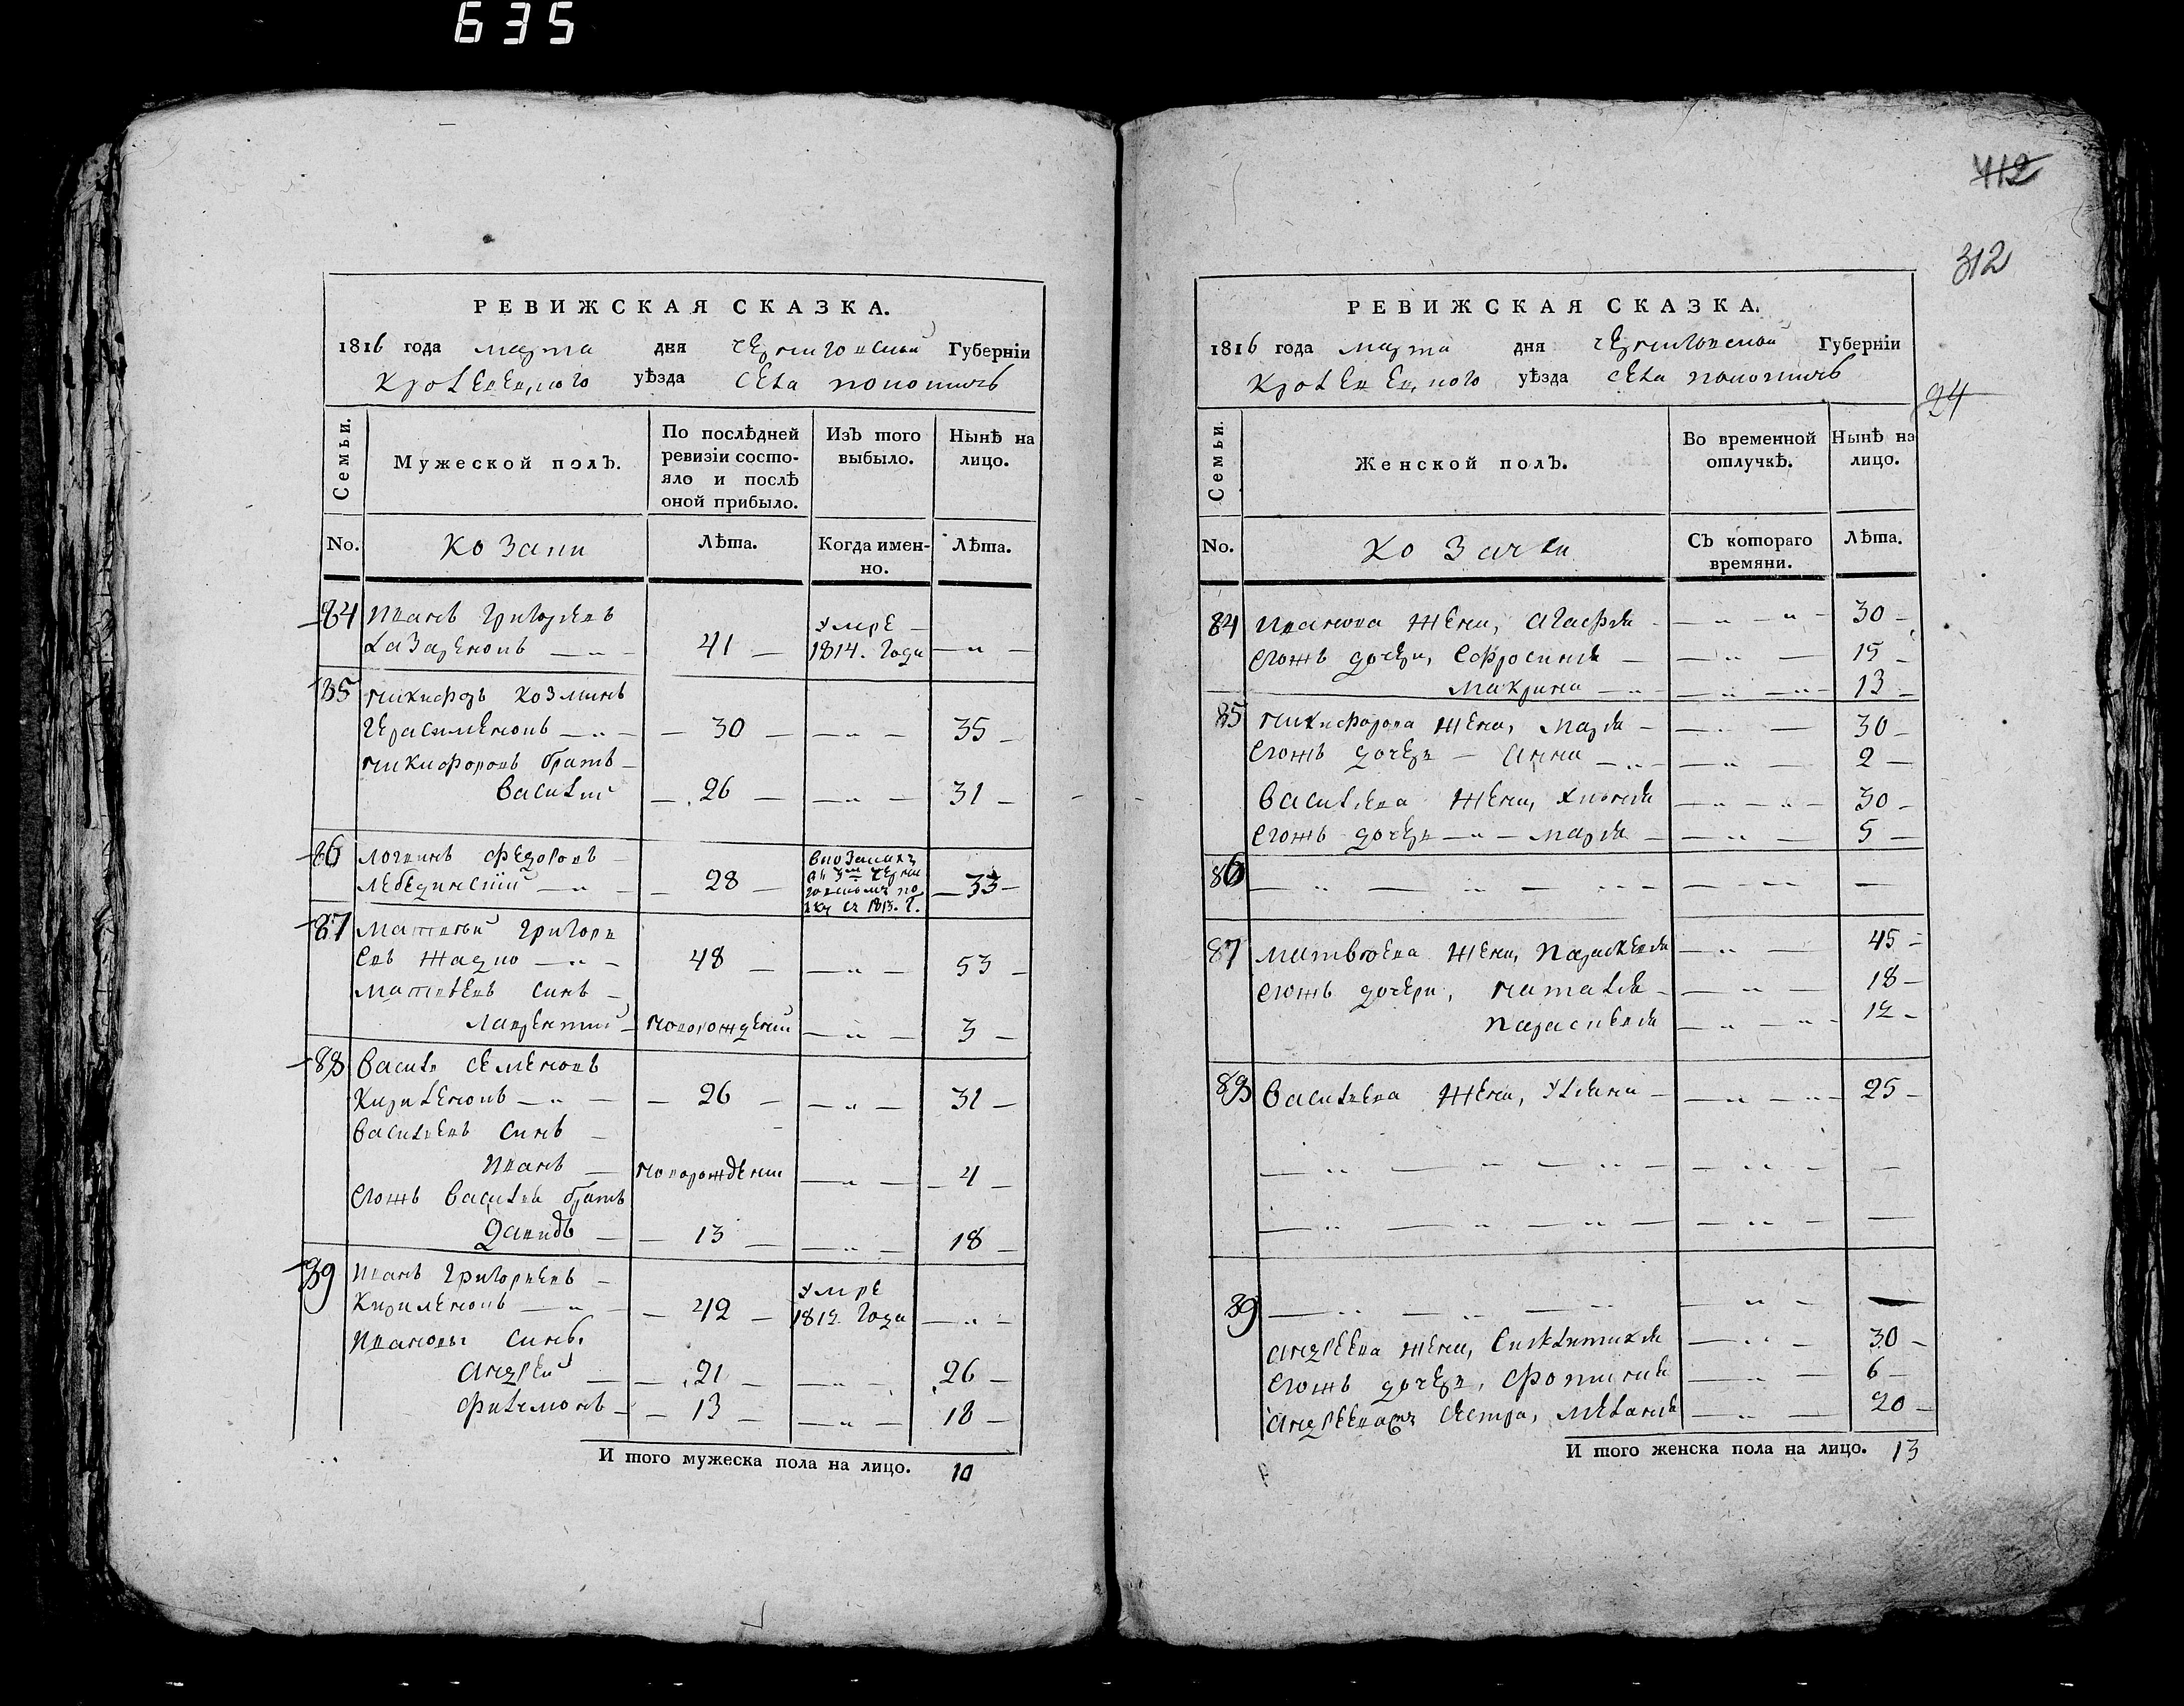 635
412
312
24
РЕВИЖСКАЯ СКАЗКА.
1816 года марта дня черниговской Губерніи
кролевецкого уѣзда села
Семьи.
Мужеской полъ.
По послѣдней ревизіи состояло и послѣ оной прибыло.
Изъ того выбыло.
Нынѣ на лицо.
No.
козаки
Лѣта.
Когда именно.
Лѣта.
84 Иванъ Григорьевъ умре
Лазаренковъ 41 1814. года
85 Никифоръ Козминъ
Герасименковъ 30 35
Никифоровъ братъ
Василий 26 31
86 Логвинъ Федоровъ
Лебединский 28 33
87 Матвей Григори
евъ 48 53
Матвеевъ синъ
Лаврентий новорожденый 3
88 Василь Семеновъ
Кириленковъ 26 31
Васильевъ синъ
Иванъ новорожденны 4
егожъ Василя братъ
Давидъ 13 18
89 Иванъ Григориевъ умре
Кириленковъ 42 1812. года
Ивановы сины
Андрей 21 26
Филимонъ 13 18
И того мужеска пола на лицо. 10
РЕВИЖСКАЯ СКАЗКА.
1816 года марта дня черниговской Губерніи
кролевецкого уѣзда села
Семьи.
Женской полъ.
Во временной отлучкѣ.
Нынѣ на лицо.
No.
козачки
Съ котораго времяни.
Лѣта.
84 Иванова жена, Агафия 30
егожъ дочери, Ефросиния 15
Макрина 13
85 Никифорова жена, Мария 30
егожъ дочери Анна 2
Василиева жена, Хивния 30
егожъ дочери Мария 5
86
87 Матвеева жена, Параскевия 45
егожъ дочери, Наталия 18
Параскевия 12
88 Василиева жена, Улияна 25
89
Андреева жена, Синклитикия 30
егожъ дочери, Фотиния 6
сестра, Мелания 20
И того женска пола на лицо. 13